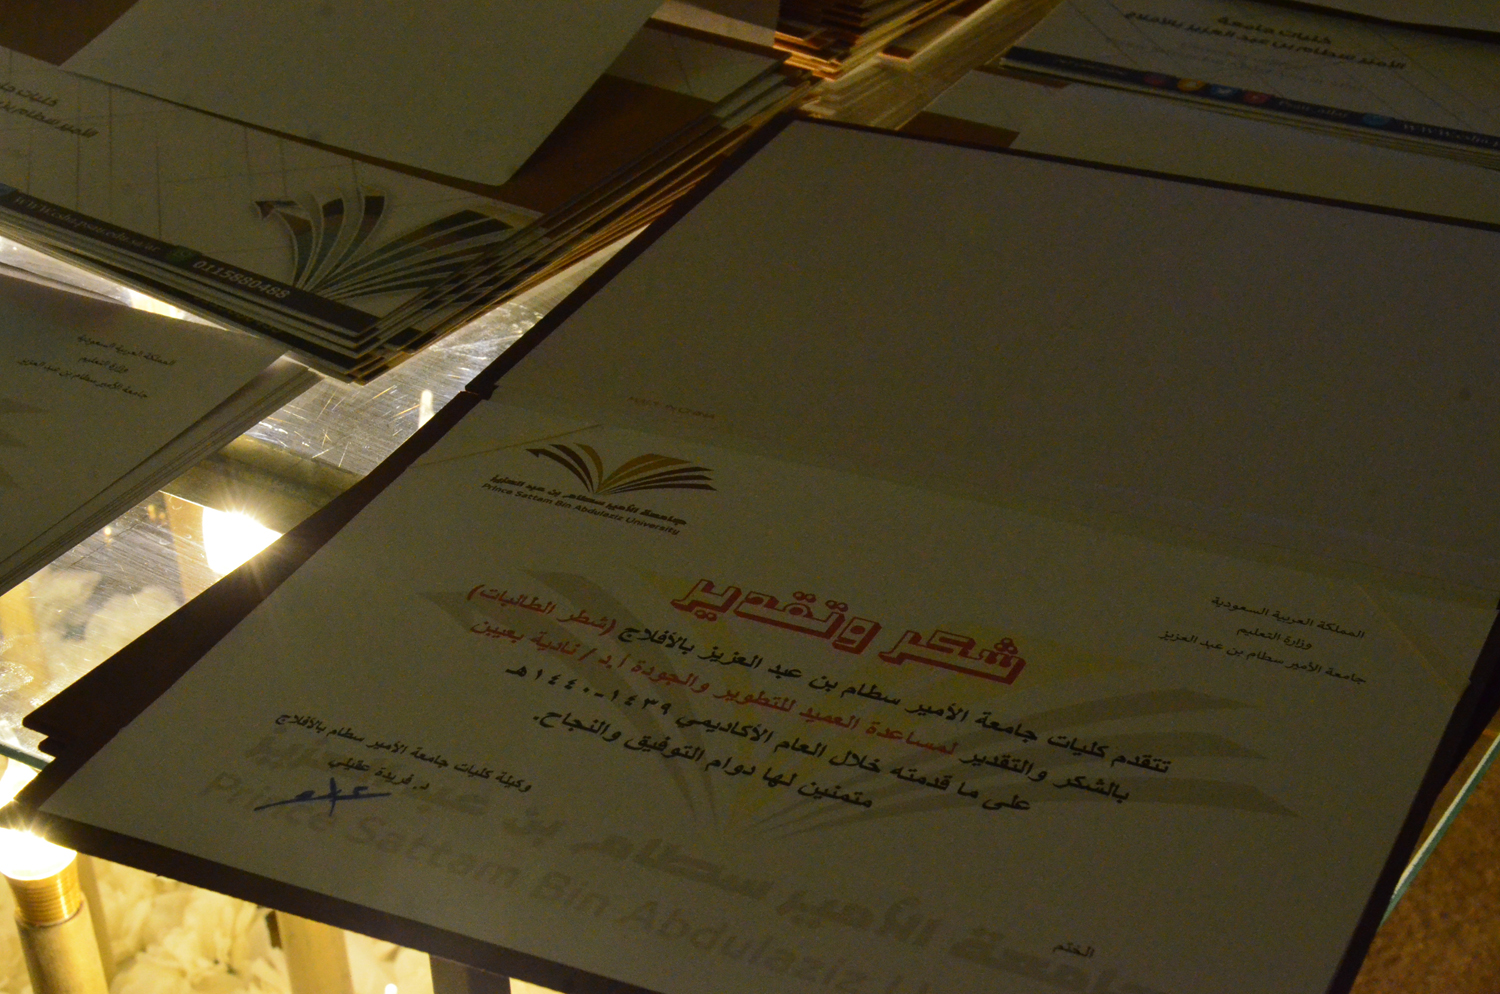 كليات جامعة
الأمير سطام بن عبد العزيز بالأفلاج
0115880488
المملكة العربية السعودية
وزارة التعليم
جامعة الأمير سطام بن عبد العزيز
جامعة الأمير سطام بن عبد العزيز
Prince Sattam Bin Abdulaziz University
المملكة العربية السعودية
وزارة التعليم
جامعة الأمير سطام بن عبد العزيز
شكر وتقدير
تتقدم كليات جامعة الأمير سطام بن عبد العزيز بالأفلاج (شطر الطالبات)
بالشكر والتقدير لمساعدة العميد للتطوير والجودة أ.د/ نادية بعيبن
على ما قدمته خلال العام الأكاديمي ١٤٣٩-١٤٤٠هـ
متمنين لها دوام التوفيق والنجاح.
وكيلة كليات جامعة الأمير سطام بالأفلاج
د. فريدة عقيلي
الختم
جامعة الأمير سطام بن عبد العزيز
Prince Sattam Bin Abdulaziz